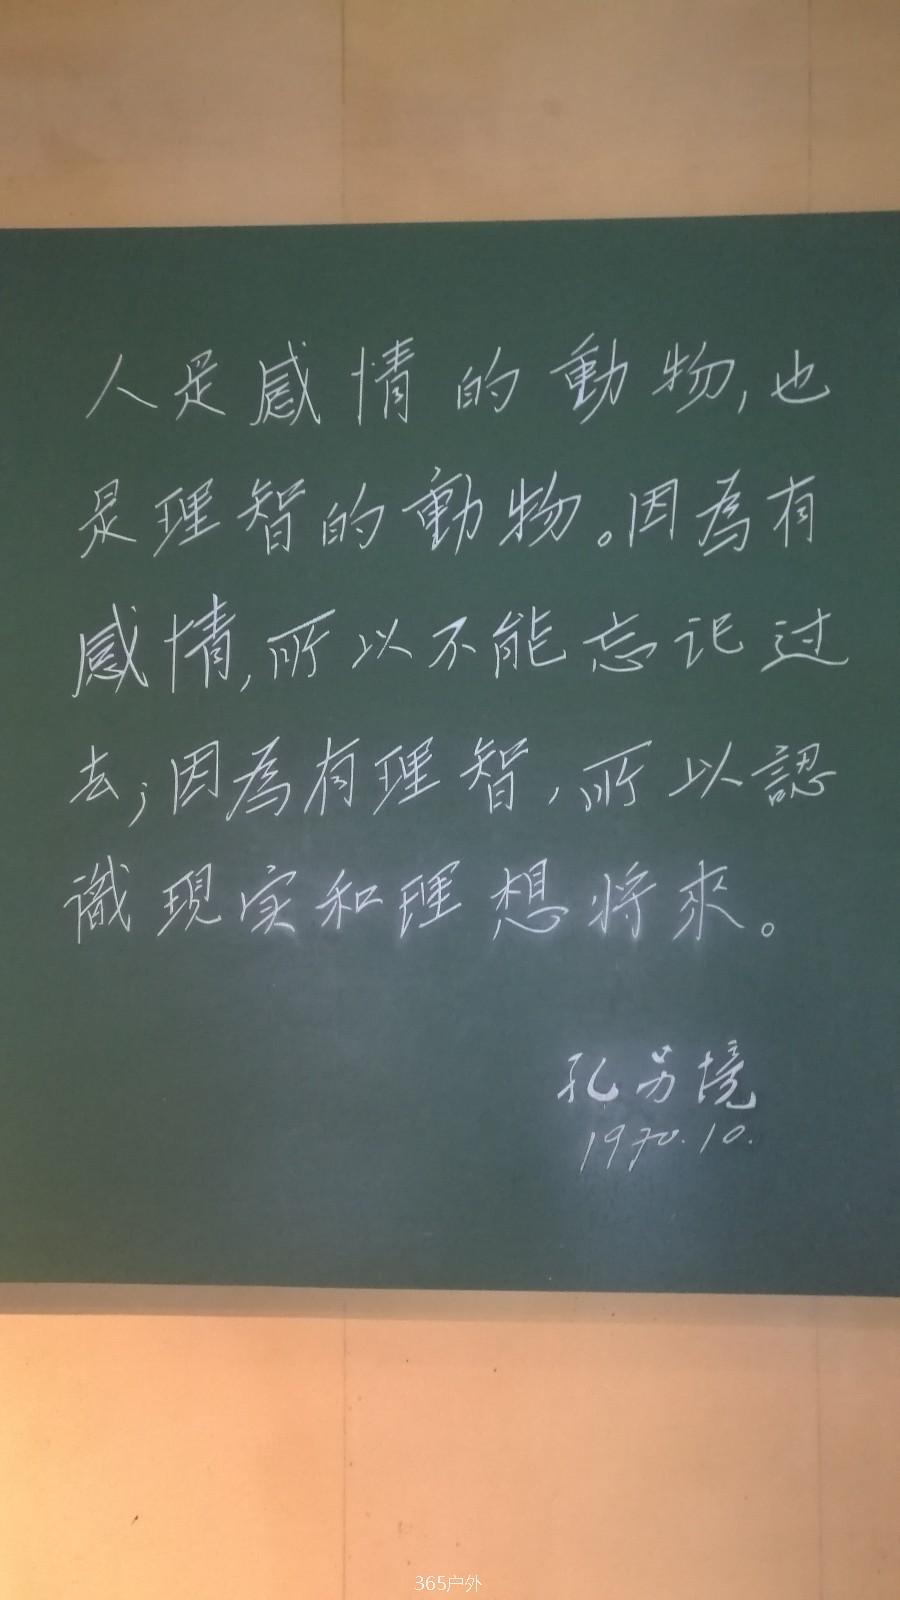 人是感情的動物，也
是理智的動物。因為有
感情，所以不能忘记过
去；因為有理智，所以認
識現实和理想将來。
孔另境
1970.10.
365户外